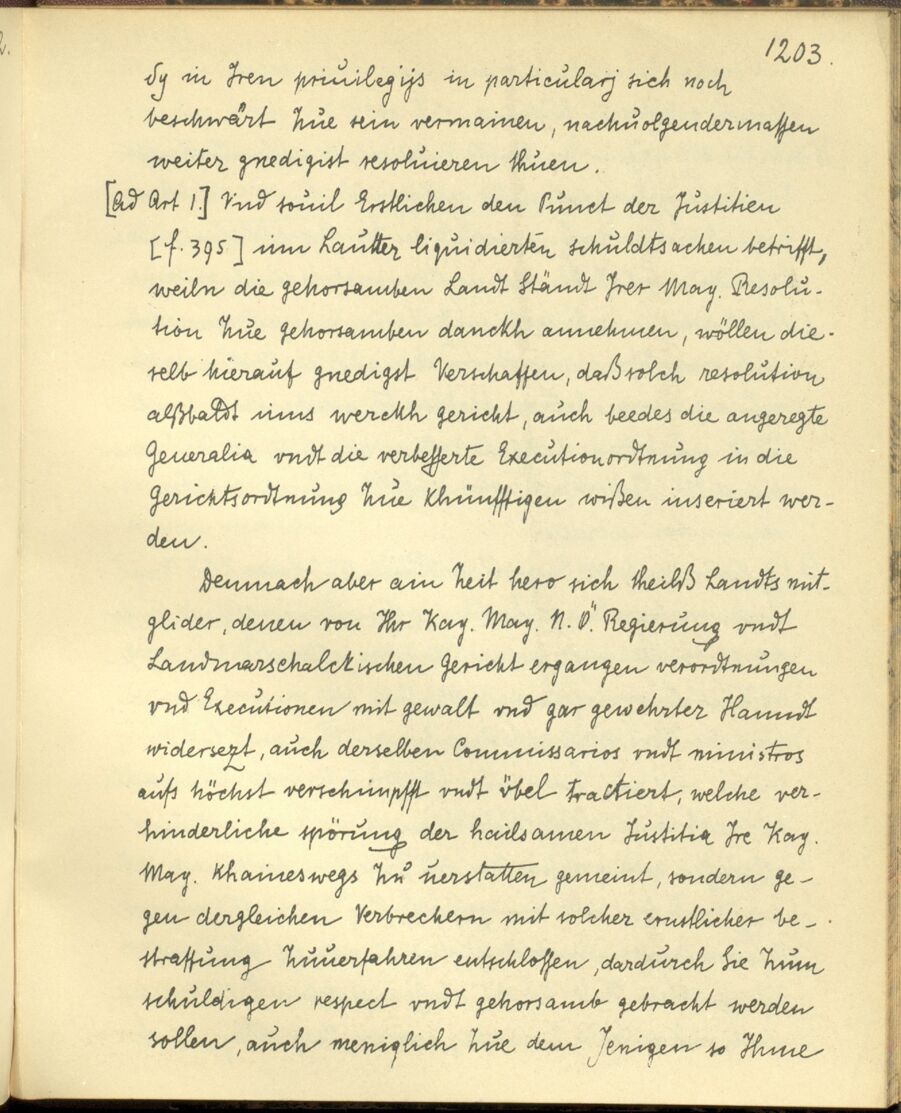 1203.
sy in Iren priuilegijs in particularj sich noch
beschwärt zue sein vermainen, nachuolgendermassen
weiter gnedigist resoluieren thuen.
[Ad Art 1.] Vnd souil Erstlichen den Punct der Justitien
[f. 395] inn Lautter liquidierten schuldtsachen betrifft,
weiln die gehorsamben Landt Ständt Irer May. Resolu-
tion zue gehorsamben danckh annehmen, wöllen die-
selb hierauf gnedigst Verschaffen, daß solch resolution
alßbaldt inns werckh gericht, auch beedes die angeregte
Generalia vndt die verbesserte Executionordtnung in die
Gerichtsordtnung zue khünfftigen wißen inseriert wer-
den.
Demnach aber ain Zeit hero sich theilß Landts mit-
glider, denen von Ihr Kay. May. N.Ö. Regierung vndt
Landmarschalckischen Gericht ergangen verordtnungen
vnd Executionen mit gewalt vnd gar gewehrter Hanndt
widersezt, auch derselben Commissarios vndt ministros
aufs höchst verschimpfft vndt öbel tractiert, welche ver-
hinderliche spörung der hailsamen Justitia Ire Kay.
May. khaineswegs zu uerstatten gemeint, sondern ge-
gen dergleichen Verbrechern mit solcher ernstlicher be-
straffung zuuerfahren entschlossen, dardurch Sie zum
schuldigen respect vndt gehorsamb gebracht werden
sollen, auch meniglich zue dem Jenigen so Ihme